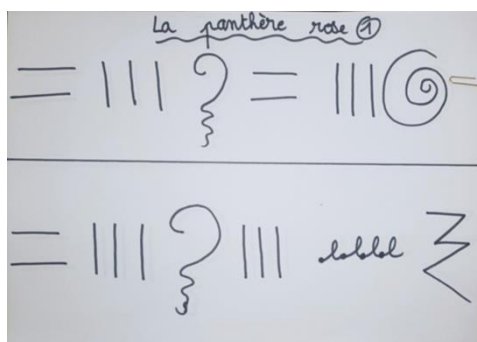 La panthère rose ①